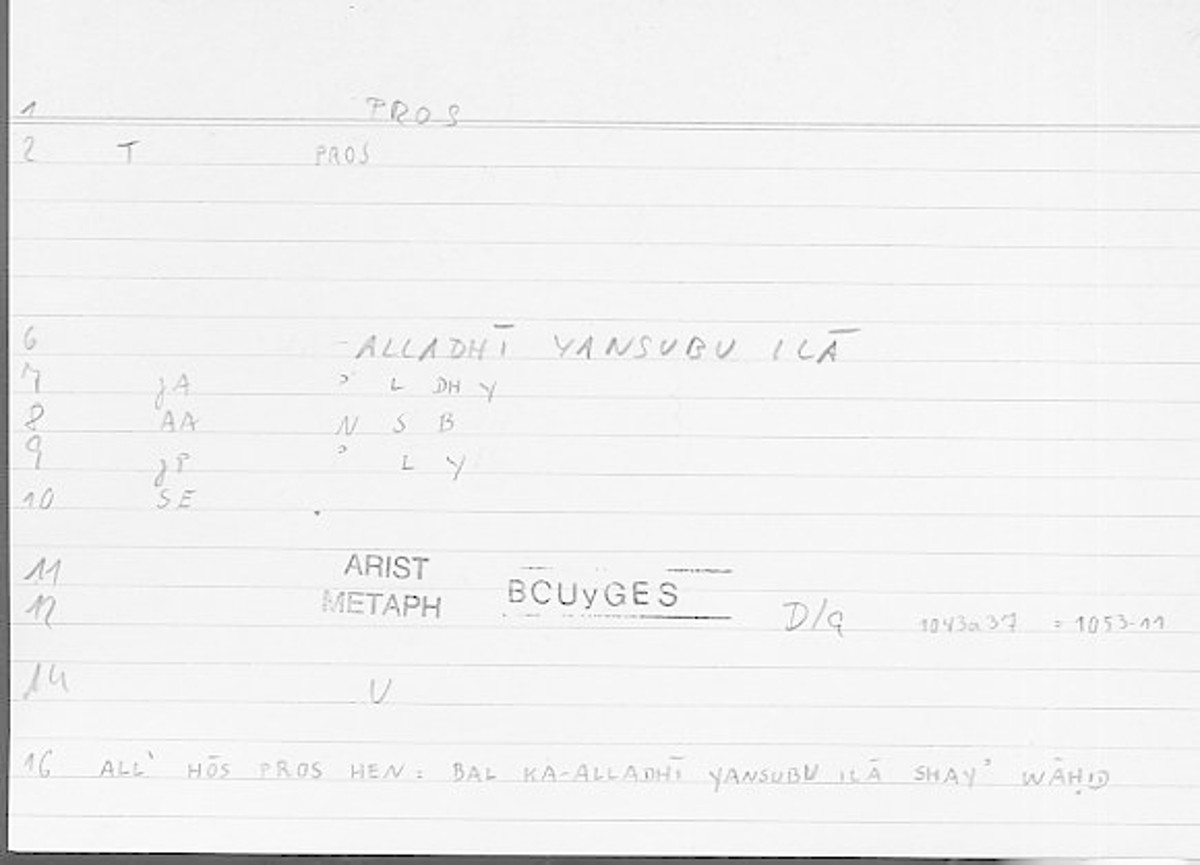 1 PROS
2 T PROS
6 -ALLADHĪ YANSUBU ILĀ
7 jA ʾ L DHY
8 AA N S B
9 jP ʾ L Y
10 SE .
11 ARIST
BCUyGES
12 METAPH D/q 1043a37 = 1053-11
14 V
16 ALL' HŌS PROS HEN : BAL KA-ALLADHĪ YANSUBU ILĀ SHAYʾ WĀḤID